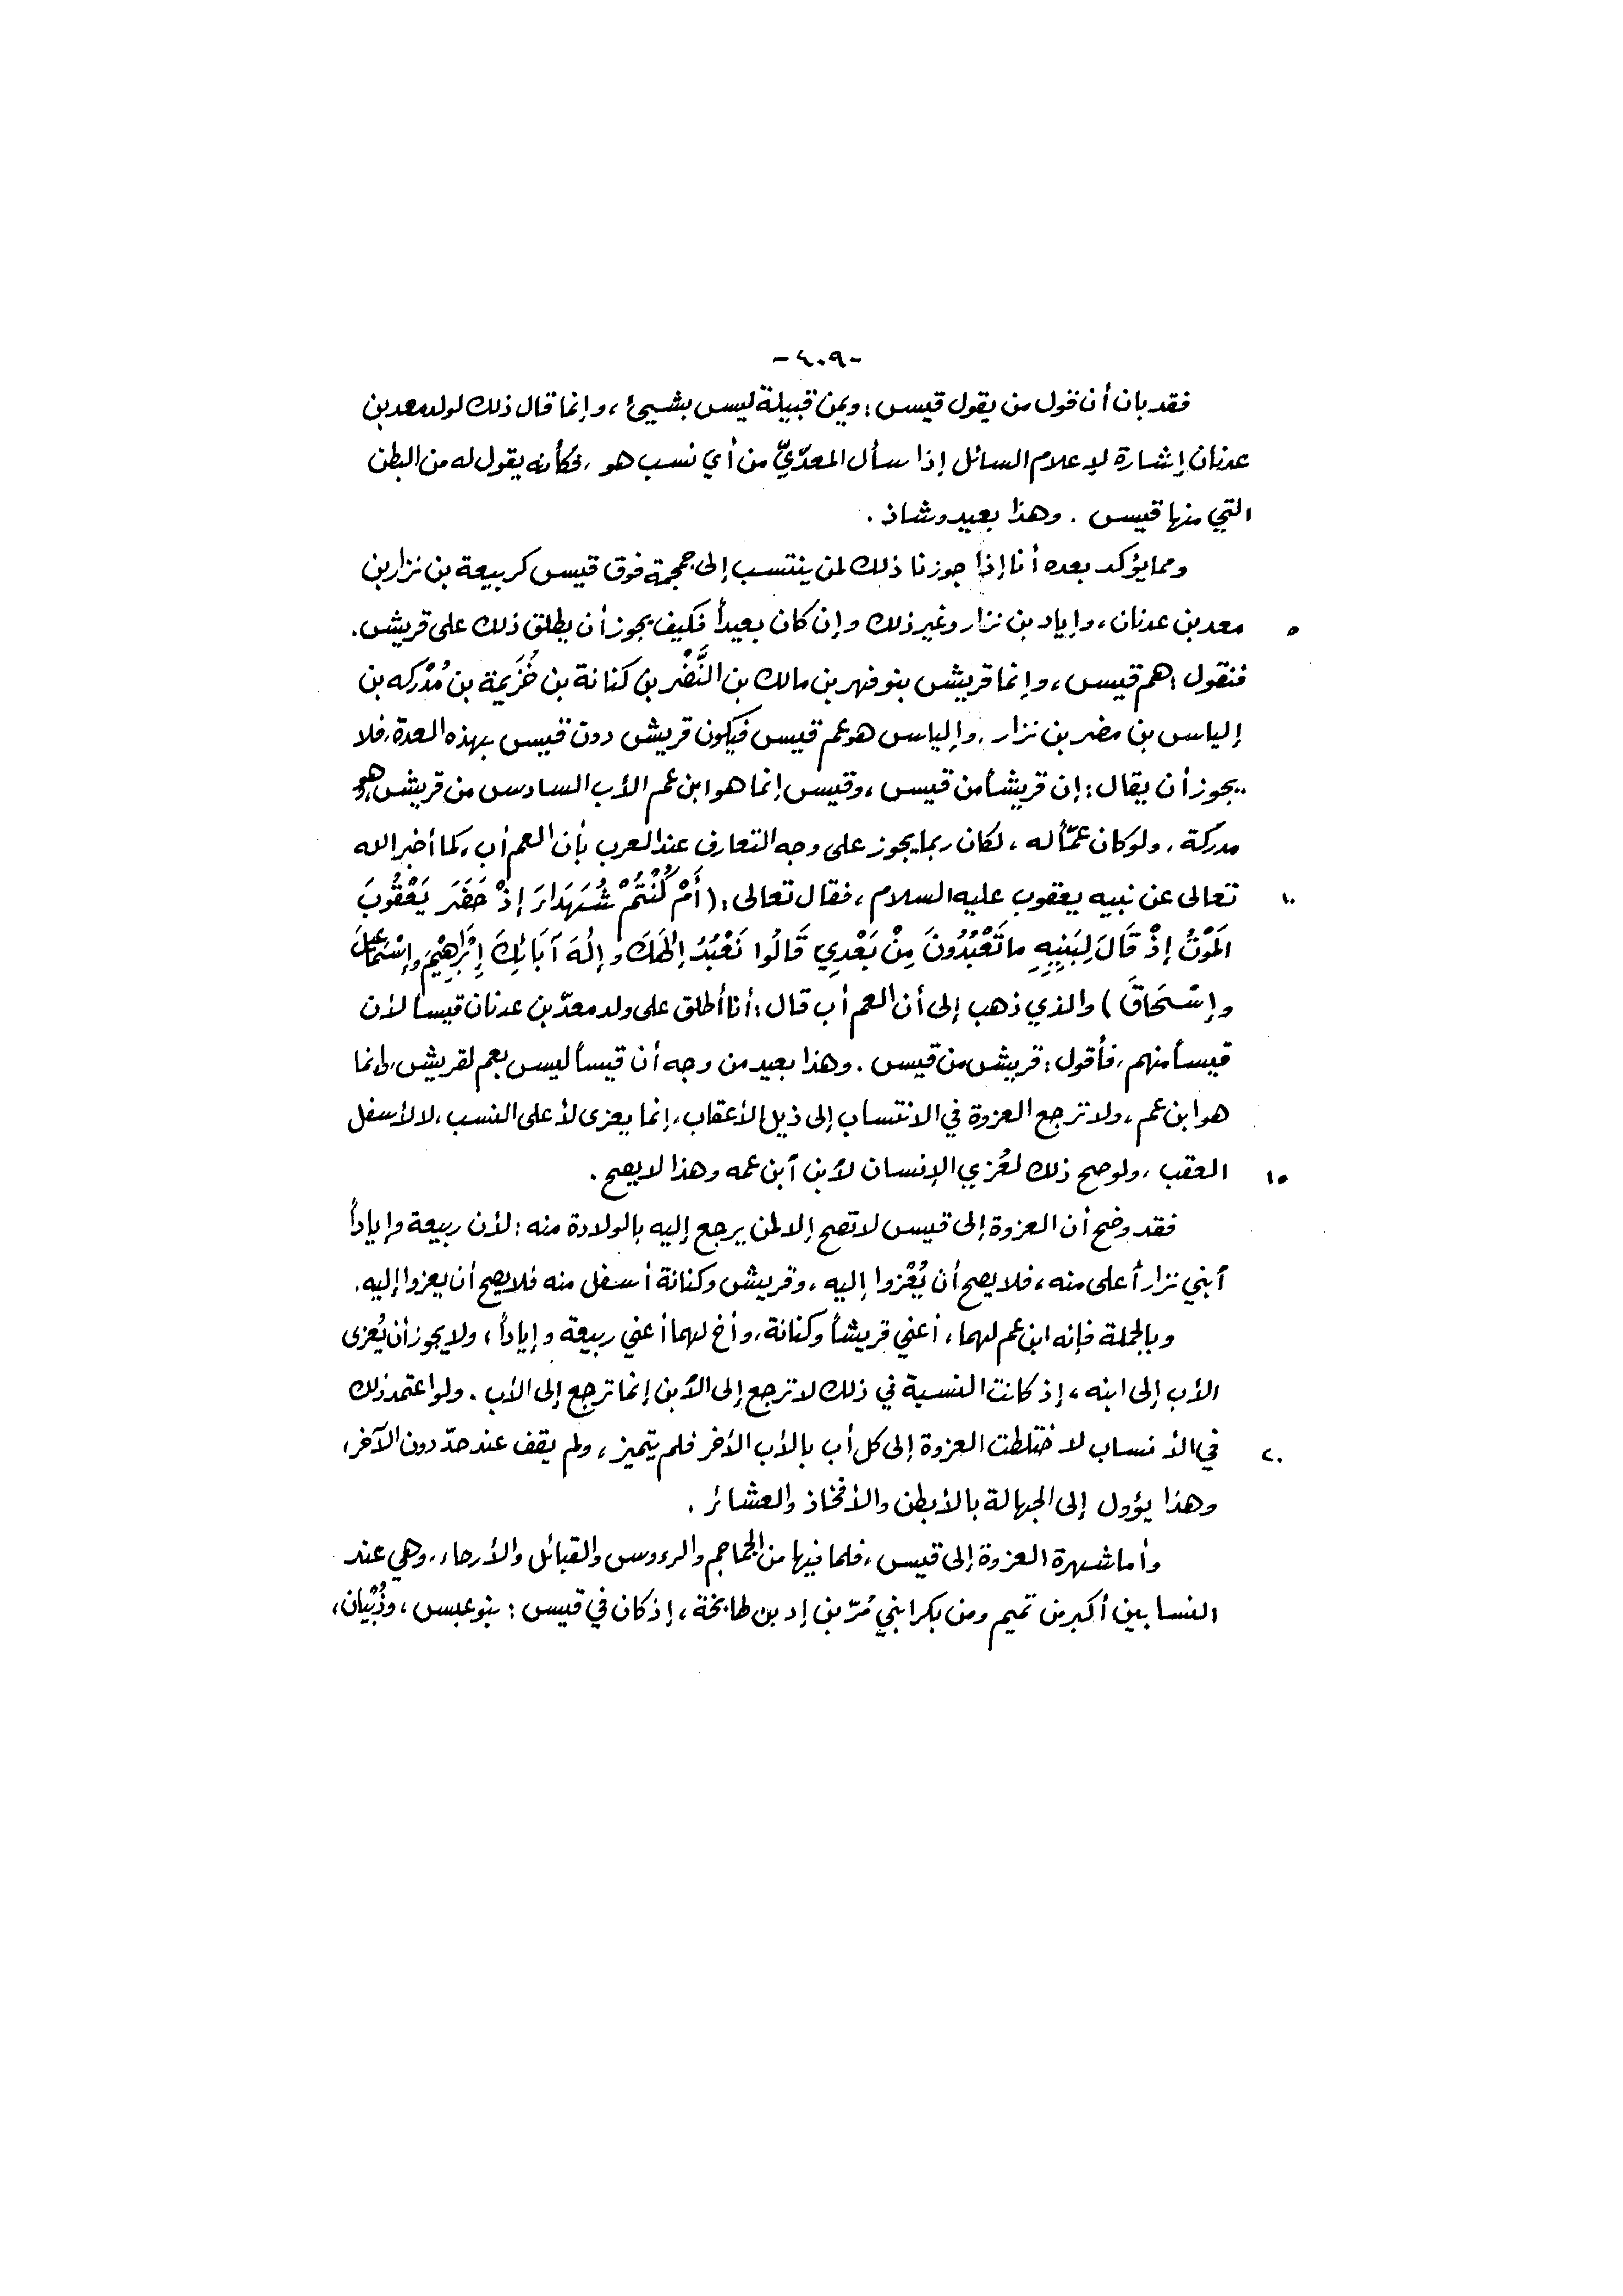 -٤٠٩-
فقد بان أن قول من يقول قيس : ويمن قبيلة ليس بشيئ ، وإنما قال ذلك لولد معد بن
عدنان إشارة لإعلام السائل إذا سأل المعدّيّ من أي نسب هو ، فكأنه يقول له من البطن
التي منها قيس . وهذا بعيد وشاذ .
ومما يؤكد بعده أنا إذا جوزنا ذلك لمن ينتسب إلى جمجمة فوق قيس كربيعة بن نزار بن
٥ معد بن عدنان ، وإياد بن نزار وغير ذلك وإن كان بعيداً فكيف يجوز أن يطلق ذلك على قريش .
فنقول : هم قيس ، وإنما قريش بنو فهر بن مالك بن النَّضْر بن كنانة بن خُزَيمة بن مُدْركه بن
إلياس بن مضر بن نزار ، وإلياس هو عم قيس فيكون قريش دون قيس بهذه العدة ، فلا
يجوز أن يقال : إن قريشاً من قيس ، وقيس إنما هو ابن عم الأب السادس من قريش ، وهو
مدركة ، ولو كان عمّاً له ، لكان ربما يجوز على وجه التعارف عند العرب بأن العم أب ، كما أخبر الله
١٠ تعالى عن نبيه يعقوب عليه السلام ، فقال تعالى : ( أَمْ كُنْتُمْ شُهَدَاءَ إذْ حَضَرَ يَعْقُوبَ
المَوْتُ إذْ قَالَ لِبَنِيهِ ما تَعْبُدُونَ مِنْ بَعْدِي قَالُوا نَعْبُدُ إلهَكَ وإلهَ آبَائِكَ إبْرَاهِيْمَ وإسْمَاعِيلَ
وإسْحَاقَ ) والذي ذهب إلى أن العم أب قال : أنا أطلق على ولد معدّ بن عدنان قيساً لأن
قيساً منهم ، فأقول : قريش من قيس . وهذا بعيد من وجه أن قيساً ليس بعم لقريش ، وإنما
هو ابن عم ، ولا ترجع العزوة في الانتساب إلى ذيل الأعقاب ، إنما يعزى لأعلى النسب ، لا لأسفل
١٥ العقب ، ولو صح ذلك لعُزي الإنسان لأبن أبن عمه وهذا لا يصح .
فقد وضح أن العزوة إلى قيس لا تصح إلا لمن يرجع إليه بالولادة منه : لأن ربيعة وإياداً
أبني نزار أعلى منه ، فلا يصح أن يُعْزوا إليه ، وقريش وكنانة أسفل منه فلا يصح أن يعزوا إليه .
وبالجملة فإنه ابن عم لهما ، أعني قريشاً وكنانة ، وأخ لهما أعني ربيعة وإياداً ، ولا يجوز أن يُعزى
الأب إلى ابنه ، إذ كانت النسبة في ذلك لا ترجع إلى الأبن إنما ترجع إلى الأب . ولو اعتمد ذلك
٢٠ في الأنساب لاختلطت العزوة إلى كل أب بالأب الأخر فلم يتميز ، ولم يقف عند حدّ دون الآخر ،
وهذا يؤول إلى الجهالة بالأبطن والأفخاذ والعشائر .
وأما شهرة العزوة إلى قيس ، فلما فيها من الجماجم والرءوس والقبائل والأرحاء ، وهي عند
النسابين أكبر من تميم ومن بكر ابني مُرّ بن إد بن طابخة ، إذ كان في قيس : بنو عبس ، وذُبْيان ،